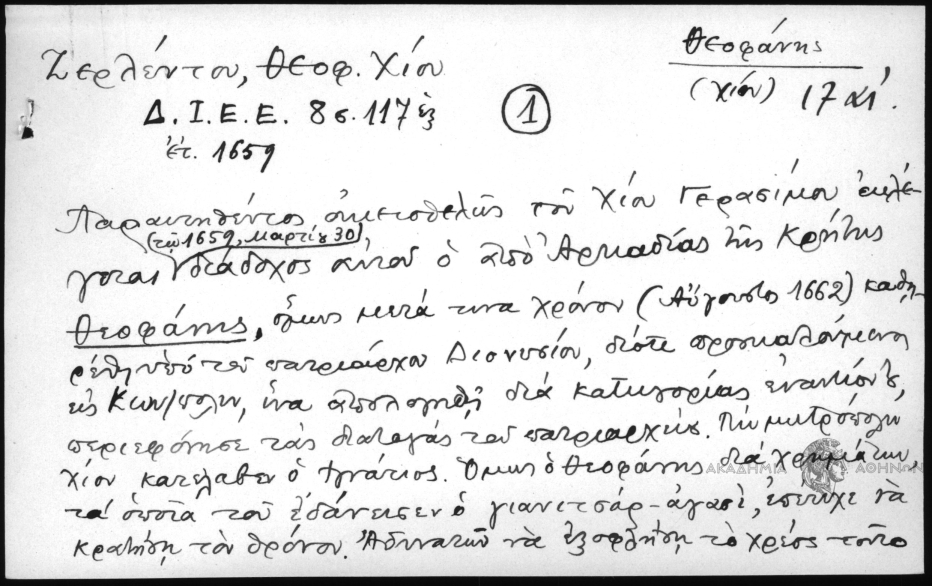 Ζερλέντου, Θεοφ. Χίου
Θεοφάνης
(Χίου) 17 αἰ.
Δ. Ι. Ε. Ε. 8 σ. 117 ἑξ
ἐτ. 1659
1
Παραιτηθέντος οἰκειοθελῶς τοῦ Χίου Γερασίμου ἐκλέ-
(τῷ 1659, Μαρτίου 30)
γεται διάδοχος αὐτοῦ ὁ ἀπὸ Ἀρκαδίας τῆς Κρήτης
Θεοφάνης, ὅμως μετά τινα χρόνον (Αὔγουστος 1662) καθη-
ρέθη ὑπό του πατριάρχου Διονυσίου, διότι προσκαλούμενος
εἰς Κων/πολιν, ἵνα ἀπολογηθῇ διά κατηγορίας ἐναντίον του,
περιεφόνησε τὰς διαταγάς του πατριαρχείου. Τὴν μητρόπολιν
Χίου κατέλαβεν ὁ Ἰγνάτιος. Ὅμως ὁ Θεοφάνης διά χρημάτων,
τά ὁποῖα τοῦ ἐδάνεισεν ὁ γιανιτσάρ-ἀγασί, ἐπέτυχε νὰ
κρατήσῃ τὸν θρόνον. Ἀδυνατῶν νὰ ἐξοφλήσῃ τὸ χρέος τοῦτο
ΑΚΑΔΗΜΙΑ ΑΘΗΝΩΝ